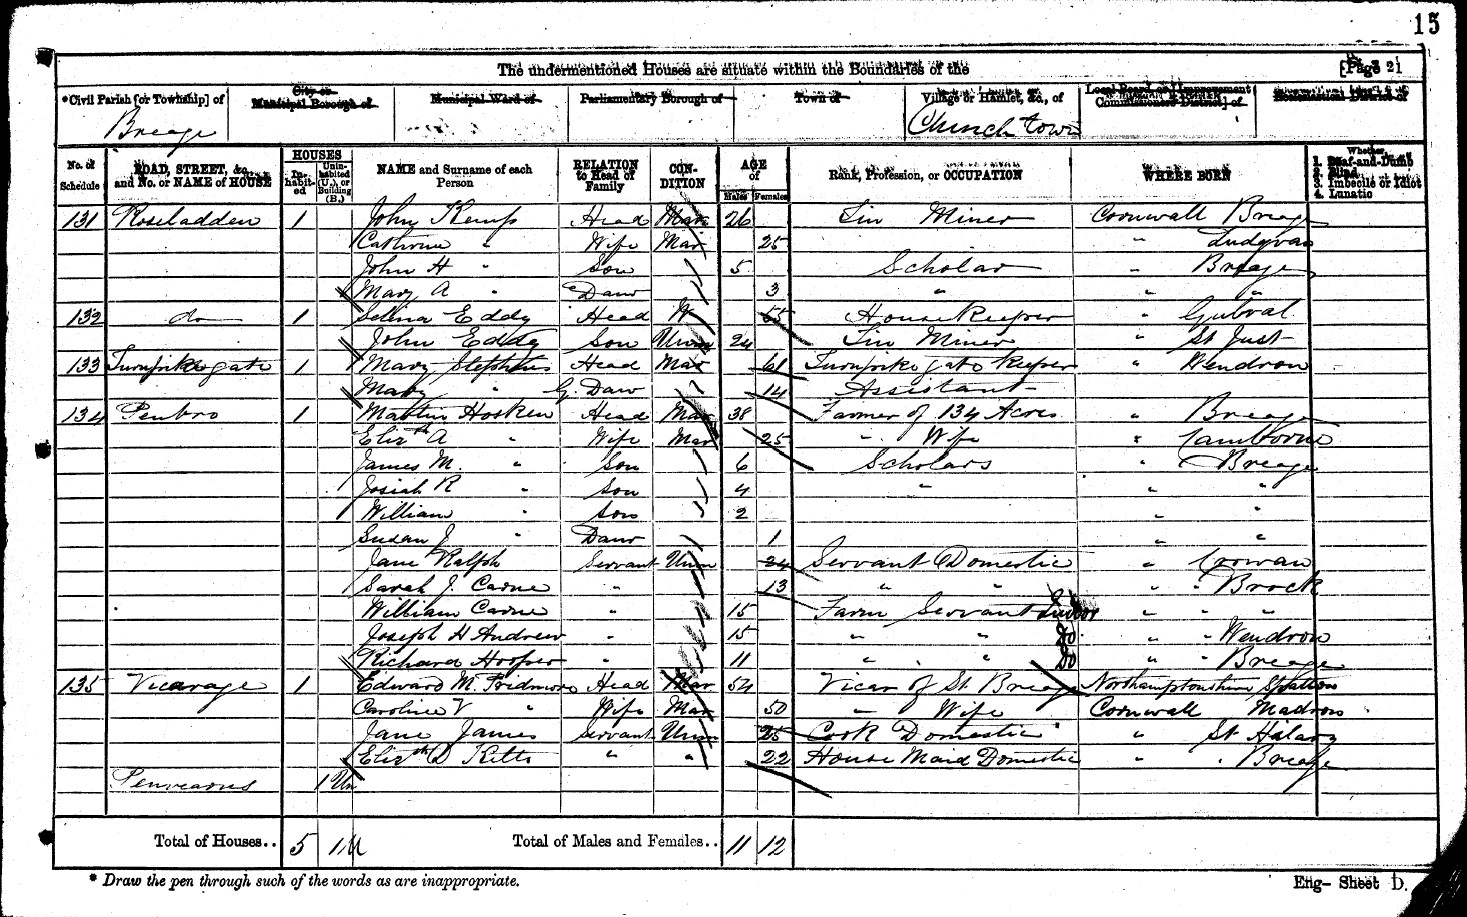 15
The undermentioned Houses are situate within the Boundaries of the
[Page 21
*Civil Parish [or Township] of City or Municipal Borough of Municipal Ward of Parliamentary Borough of Town of Village or Hamlet, &c., of Local Board, or [Improvement Commissioners District] of Ecclesiastical District of
Breage Church town
No. of Schedule ROAD, STREET, &c., and No. or NAME of HOUSE HOUSES In-habit-ed Unin-habited (U.), or Building (B.) NAME and Surname of each Person RELATION to Head of Family CON-DITION AGE of Males Females Rank, Profession, or OCCUPATION WHERE BORN Whether 1. Deaf-and-Dumb 2. Blind 3. Imbecile or Idiot 4. Lunatic
131 Roseladden 1 John Kemp Head Mar 26 Tin Miner Cornwall Breage
Catherine " Wife Mar 25 " Ludgvan
John H " Son 5 Scholar " Breage
Mary A " Daur 3 " " "
132 do 1 Selina Eddy Head W 55 House Keeper " Gulval
John Eddy Son Unm 24 Tin Miner " St Just
133 Turnpike gate 1 Mary Stephens Head Mar 61 Turnpike gate Keeper " Wendron
Mary " G. Daur 14 Assistant
134 Penbro 1 Martin Hosken Head Mar 38 Farmer of 134 Acres " Breage
Elizth A " Wife Mar 25 " Wife " Camborne
James M. " Son 6 Scholars " Breage
Josiah R " Son 4 " " "
William " Son 2 " "
Susan J " Daur 1 " "
Jane Ralph Servant Unm 24 Servant Domestic " Crowan
Sarah J. Carne " 13 " " " " Brock
William Carne " 15 Farm Servant Indoor " " "
Joseph H Andrew " 15 " " Do. " " Wendron
Richard Hooper " 11 " " Do " " Breage
135 Vicarage 1 Edward M. Pridmore Head Mar 54 Vicar of St Breage Northamptonshire
Caroline V " Wife Mar 50 " Wife Cornwall Madron
Jane James Servant Unm 25 Cook Domestic " St Hilary
Elizth D Kitts " " 22 House Maid Domestic " " Breage
1 Un
Total of Houses.. 5 1 U Total of Males and Females.. 11 12
* Draw the pen through such of the words as are inappropriate.
Eng- Sheet D.